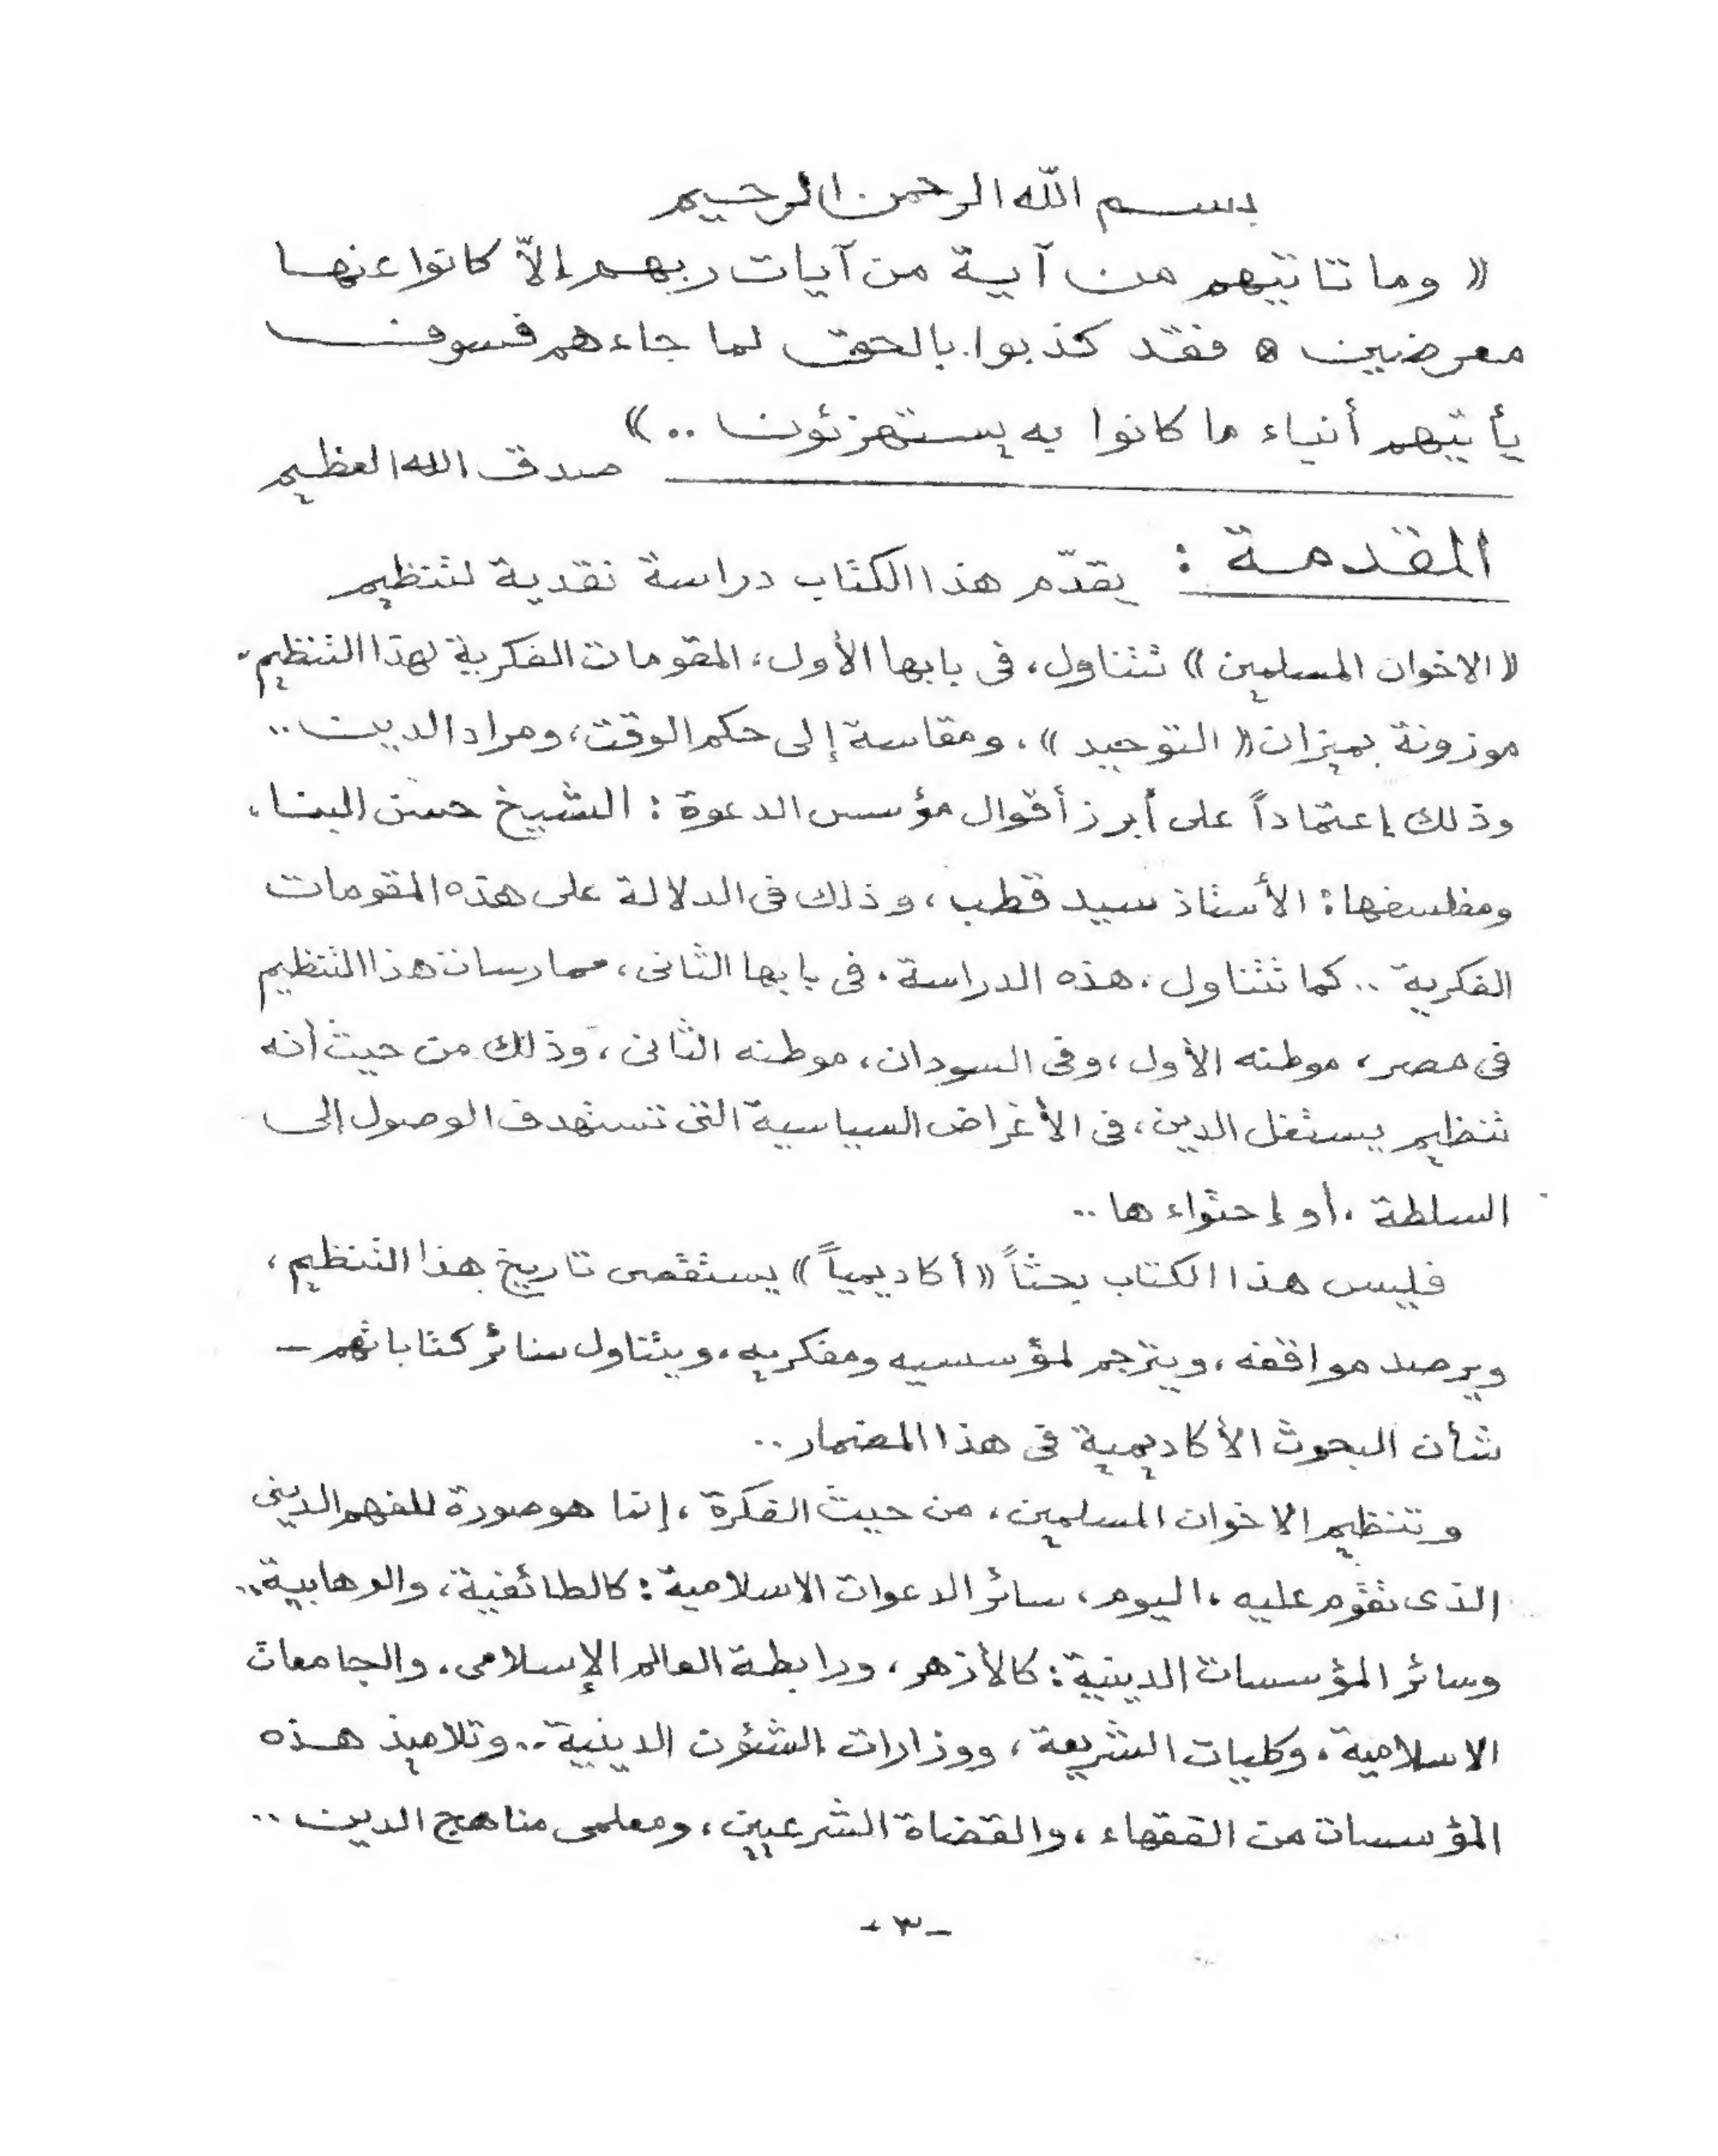 بسم الله الرحمن الرحيم
(( وما تاتيهم من آية من آيات ربهم إلاّ كانوا عنها
معرضين ه فقد كذبوا بالحق لما جاءهم فسوف
يأتيهم أنباء ما كانوا به يستهزئون .. ))
صدق الله العظيم
المقدمة : يقدّم هذا الكتاب دراسة نقدية لتنظيم
(( الاخوان المسلمين )) تتناول، فى بابها الأول، المقومات الفكرية لهذا التنظيم،
موزونة بميزان (( التوحيد ))، ومقاسة إلى حكم الوقت، ومراد الدين ..
وذلك إعتماداً على أبرز أقوال مؤسس الدعوة : الشيخ حسن البنا،
ومفلسفها : الأستاذ سيد قطب، وذلك فى الدلالة على هذه المقومات
الفكرية .. كما تتناول، هذه الدراسة، فى بابها الثانى، ممارسات هذا التنظيم
فى مصر، موطنه الأول، وفى السودان، موطنه الثانى، وذلك من حيث أنه
تنظيم يستغل الدين، فى الأغراض السياسية التى تستهدف الوصول إلى
السلطة، أو إحتواءها ..
فليس هذا الكتاب بحثاً (( أكاديمياً )) يستقصى تاريخ هذا التنظيم،
ويرصد مواقفه، ويترجم لمؤسسيه ومفكريه، ويتناول سائر كتاباتهم –
شأن البحوث الأكاديمية فى هذا المضمار ..
وتنظيم الاخوان المسلمين، من حيث الفكرة، إنما هو صورة للفهم الدينى
الذى تقوم عليه، اليوم، سائر الدعوات الاسلامية : كالطائفية، والوهابية ..
وسائر المؤسسات الدينية : كالأزهر، ورابطة العالم الإسلامى، والجامعات
الاسلامية، وكليات الشريعة، ووزارات الشئون الدينية .. وتلاميذ هذه
المؤسسات من الفقهاء، والقضاة الشرعيين، ومعلمى مناهج الدين ..
- ٣ -